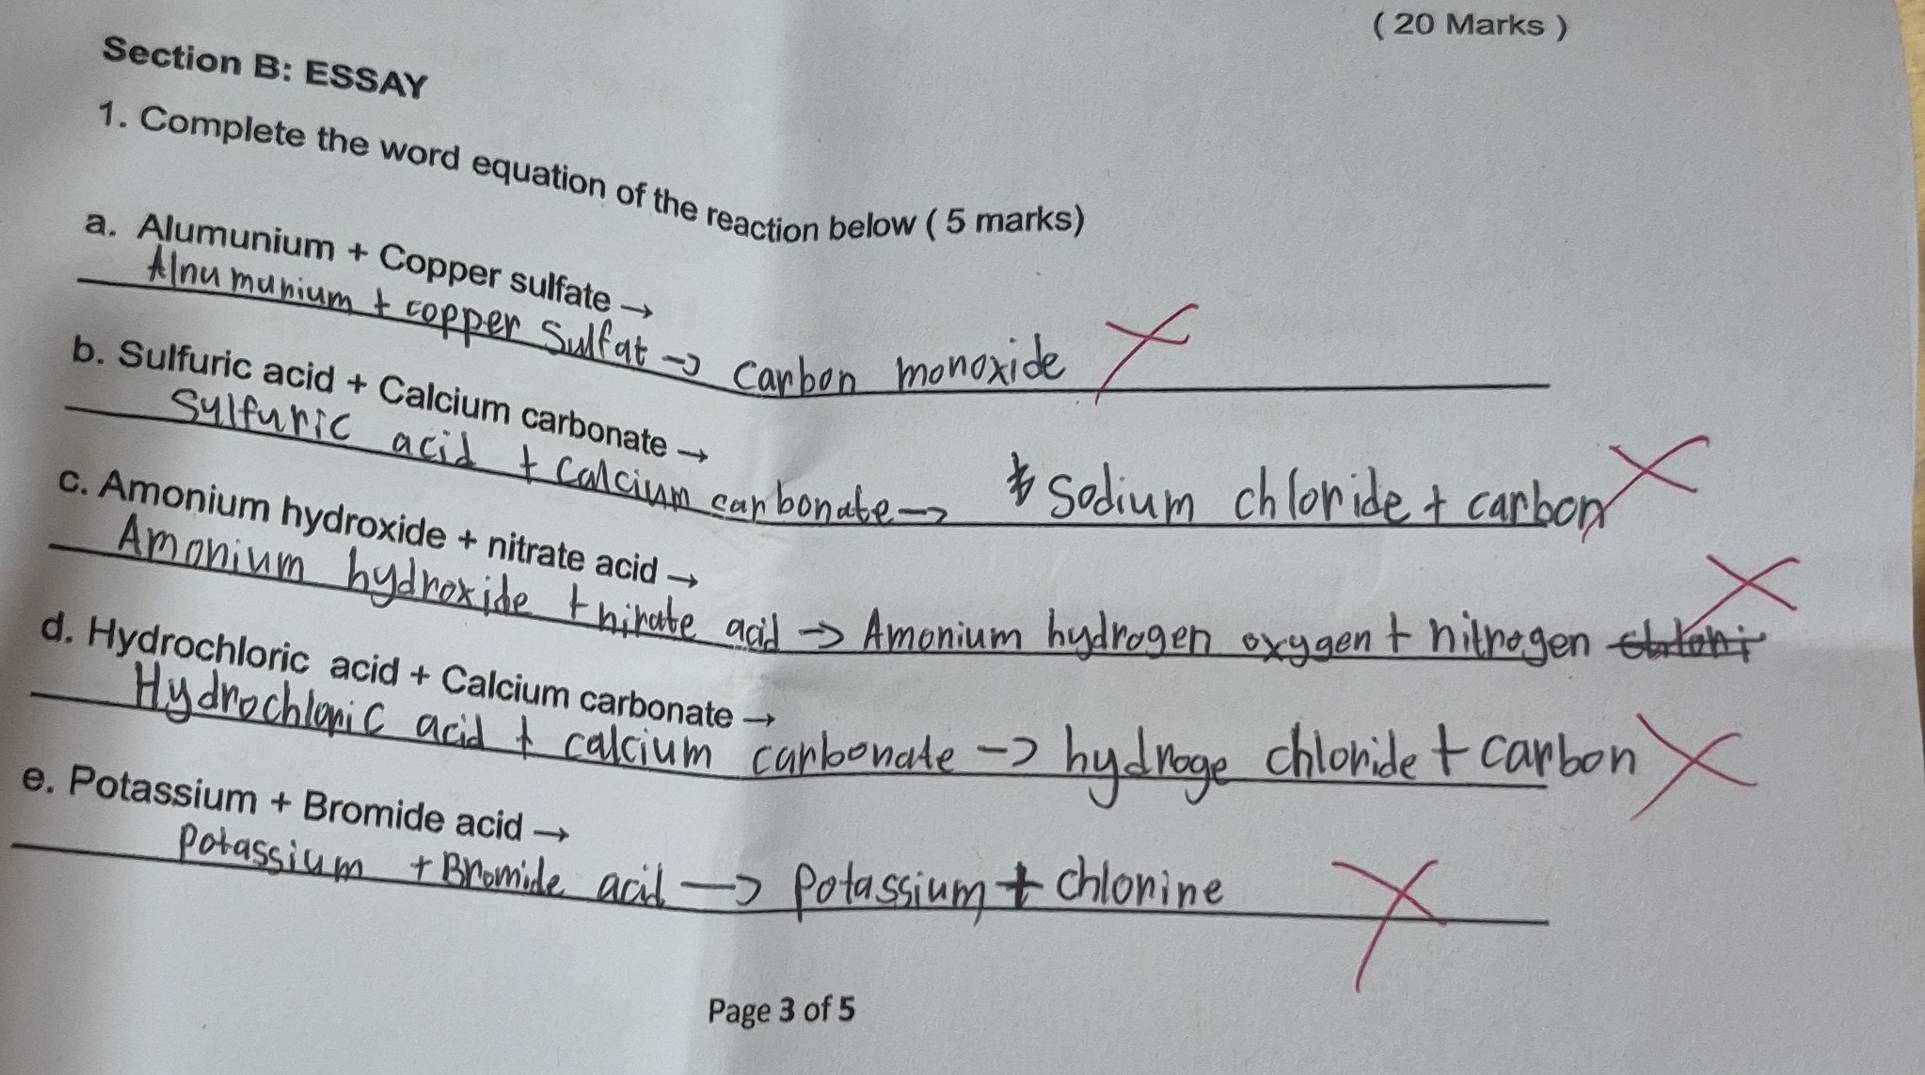 ( 20 Marks )
Section B: ESSAY
1. Complete the word equation of the reaction below ( 5 marks)
a. Alumunium + Copper sulfate →
Alnumunium + copper Sulfat → carbon monoxide
b. Sulfuric acid + Calcium carbonate →
Sulfuric acid + calcium carbonate → Sodium chloride + carbon
c. Amonium hydroxide + nitrate acid →
Amonium hydroxide + nitrate acid → Amonium hydrogen oxygen + nitrogen
d. Hydrochloric acid + Calcium carbonate →
Hydrochloric acid + calcium carbonate → hydroge chloride + carbon
e. Potassium + Bromide acid →
Potassium + Bromide acid → Potassium + chlorine
Page 3 of 5